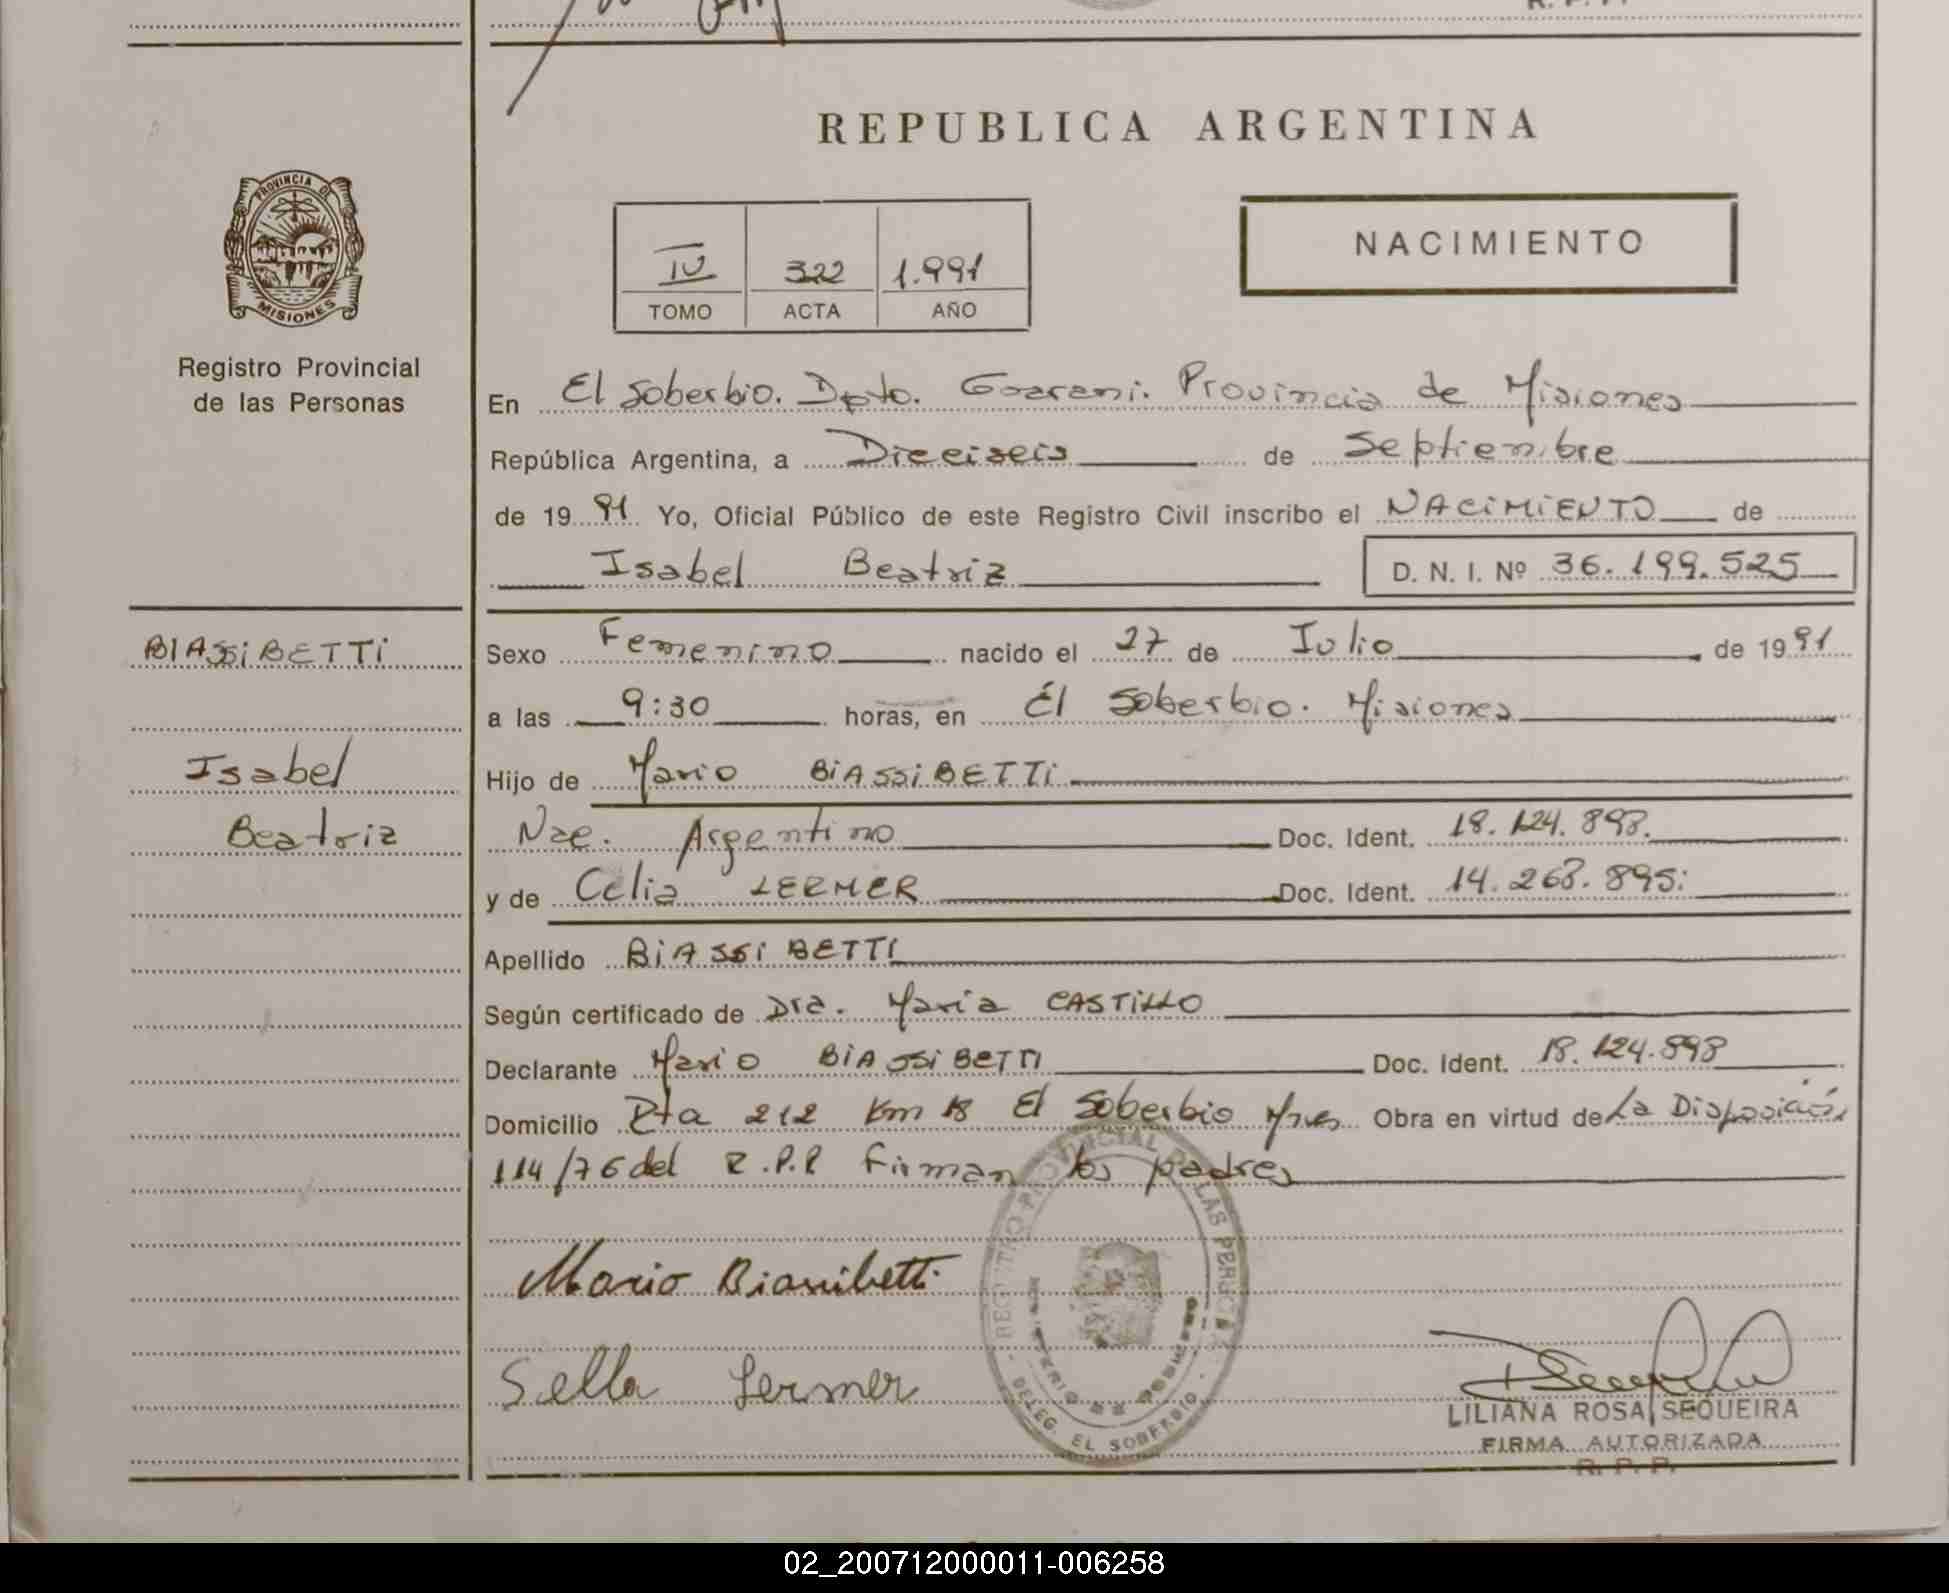 REPUBLICA ARGENTINA
PROVINCIA DE
MISIONES
Registro Provincial
de las Personas
NACIMIENTO
IV 322 1.991
TOMO ACTA AÑO
En El Soberbio. Dpto. Guarani. Provincia de Misiones
República Argentina, a Dieciseis de Septiembre
de 19 91 Yo, Oficial Público de este Registro Civil inscribo el NACIMIENTO de
Isabel Beatriz D. N. I. Nº 36.199.525
BIASSIBETTI
Isabel
Beatriz
Sexo Femenino nacido el 27 de Julio de 1991
a las 9:30 horas, en El Soberbio. Misiones
Hijo de Mario BIASSIBETTI
Nac. Argentino Doc. Ident. 18.124.898.
y de Celia LERMER Doc. Ident. 14.268.895.
Apellido BIASSIBETTI
Según certificado de Dra. Maria CASTILLO
Declarante Mario BIASSIBETTI Doc. Ident. 18.124.898
Domicilio Rta 212 Km 18 El Soberbio Mnes Obra en virtud de La Disposición
114/76 del R.P.P Firman los padres
Mario Biassibetti
Sella Lermer
REGISTRO PROVINCIAL DE LAS PERSONAS
DELEG. EL SOBERBIO
LILIANA ROSA SEQUEIRA
FIRMA AUTORIZADA
R. P. P.
02_200712000011-006258